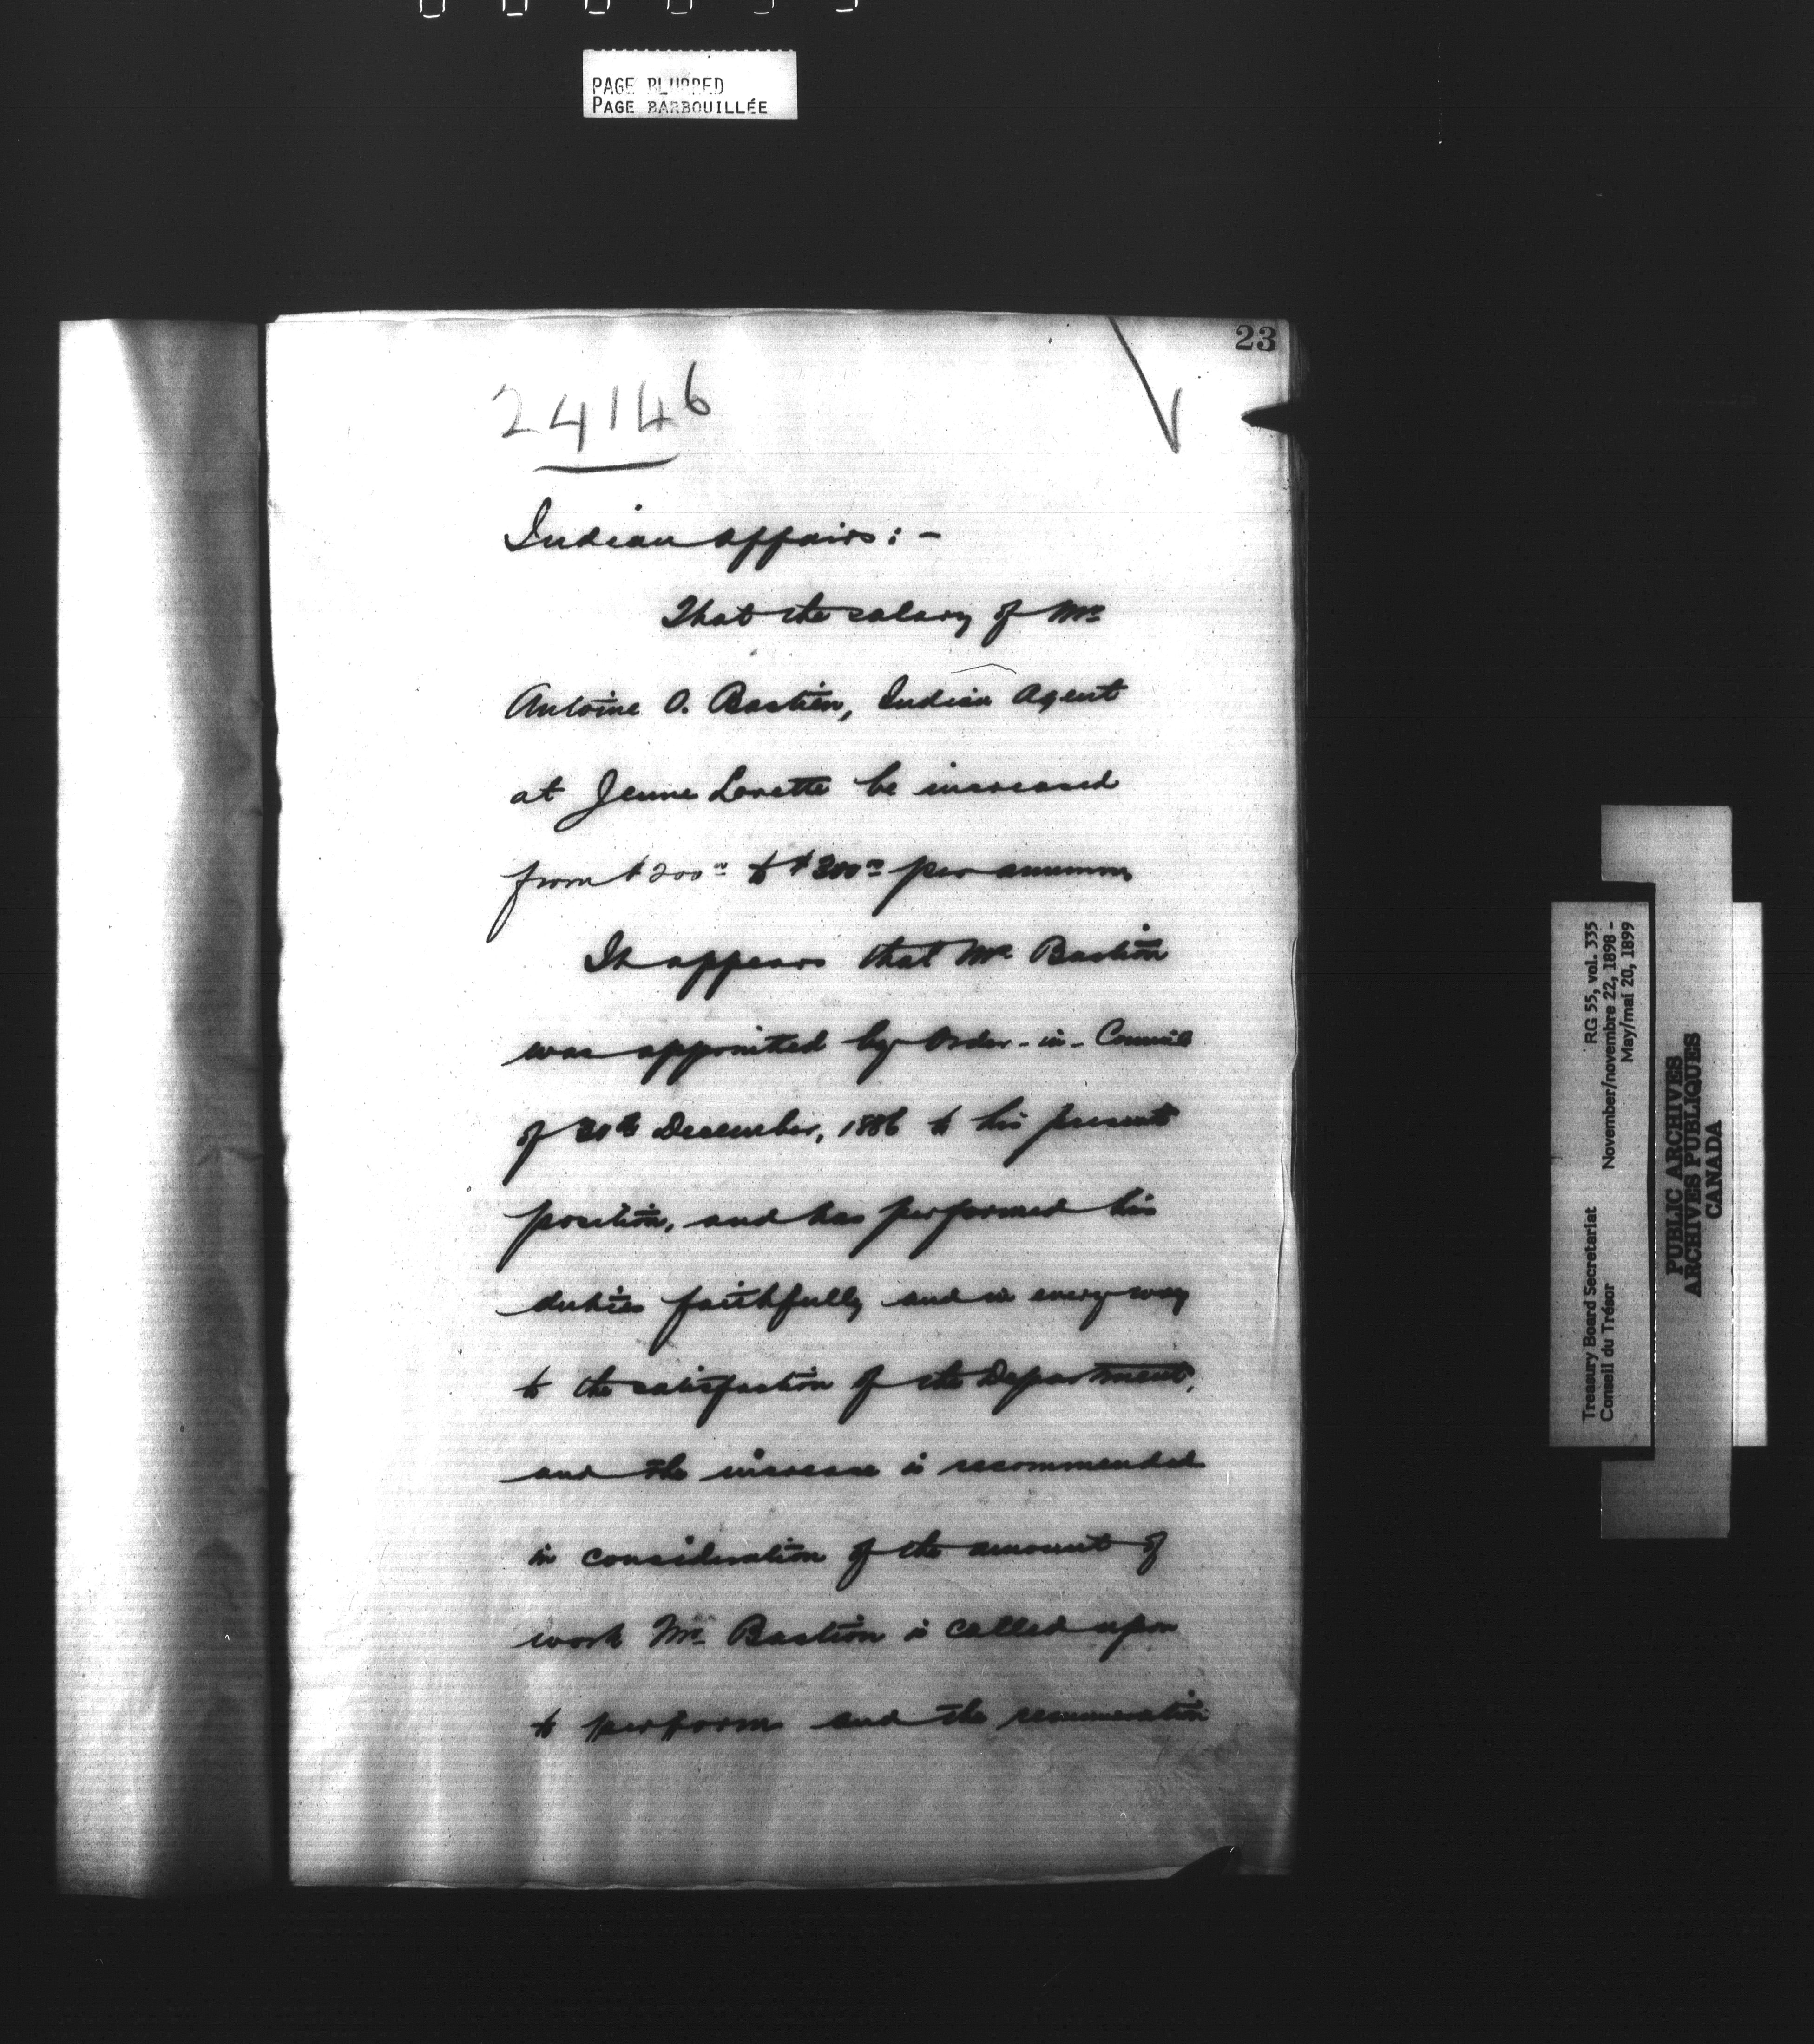 PAGE BLURRED
PAGE BARBOUILLÉE
23
24146
Indian Affairs:-
That the salary of Mr
Antoine O. Bastien, Indian Agent
at Jeune Lorette be increased
from $200.00 to $300.00 per annum
It appears that Mr. Bastien
was appointed by Order-in-Council
of 30th December, 1886 to his present
position, and has performed his
duties faithfully and in every way
to the satisfaction of the Department,
and the increase is recommended
in consideration of the amount of
work Mr Bastien is called upon
to perform and the remuneration
Treasury Board Secretariat RG 55, vol. 335
Conseil du Trésor November/novembre 22, 1898 -
May/mai 20, 1899
PUBLIC ARCHIVES
ARCHIVES PUBLIQUES
CANADA